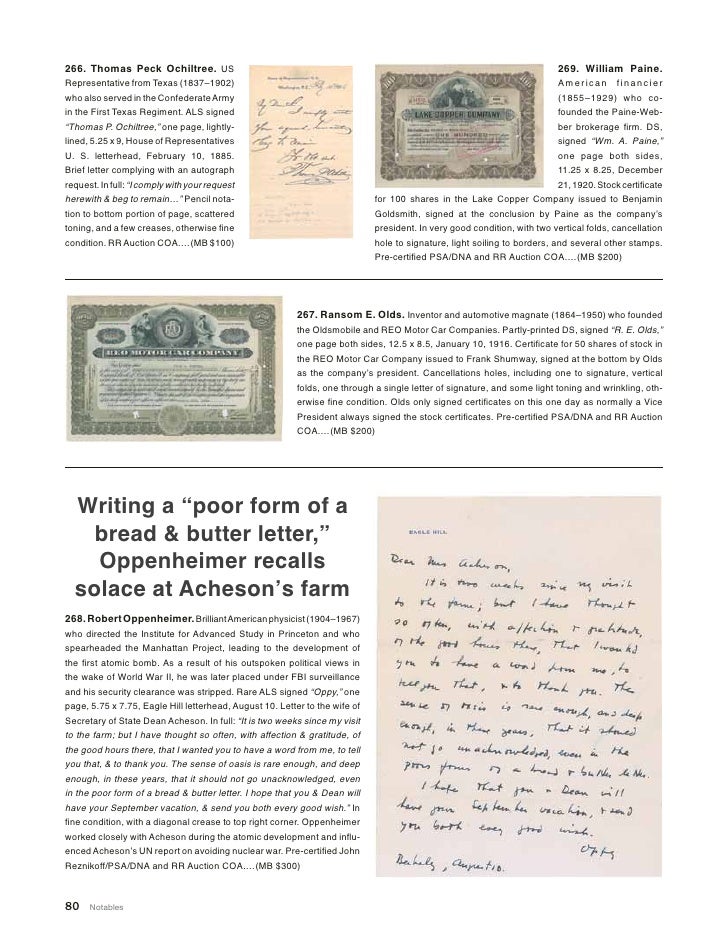 266. Thomas Peck Ochiltree. US
Representative from Texas (1837–1902)
who also served in the Confederate Army
in the First Texas Regiment. ALS signed
“Thomas P. Ochiltree,” one page, lightly-
lined, 5.25 x 9, House of Representatives
U. S. letterhead, February 10, 1885.
Brief letter complying with an autograph
request. In full: “I comply with your request
herewith & beg to remain…” Pencil nota-
tion to bottom portion of page, scattered
toning, and a few creases, otherwise fine
condition. RR Auction COA….(MB $100)
LAKE COPPER COMPANY
ONE HUNDRED
269. William Paine.
American financier
(1855–1929) who co-
founded the Paine-Web-
ber brokerage firm. DS,
signed “Wm. A. Paine,”
one page both sides,
11.25 x 8.25, December
21, 1920. Stock certificate
for 100 shares in the Lake Copper Company issued to Benjamin
Goldsmith, signed at the conclusion by Paine as the company’s
president. In very good condition, with two vertical folds, cancellation
hole to signature, light soiling to borders, and several other stamps.
Pre-certified PSA/DNA and RR Auction COA….(MB $200)
REO MOTOR CAR COMPANY
267. Ransom E. Olds. Inventor and automotive magnate (1864–1950) who founded
the Oldsmobile and REO Motor Car Companies. Partly-printed DS, signed “R. E. Olds,”
one page both sides, 12.5 x 8.5, January 10, 1916. Certificate for 50 shares of stock in
the REO Motor Car Company issued to Frank Shumway, signed at the bottom by Olds
as the company’s president. Cancellations holes, including one to signature, vertical
folds, one through a single letter of signature, and some light toning and wrinkling, oth-
erwise fine condition. Olds only signed certificates on this one day as normally a Vice
President always signed the stock certificates. Pre-certified PSA/DNA and RR Auction
COA….(MB $200)
Writing a “poor form of a
bread & butter letter,”
Oppenheimer recalls
solace at Acheson’s farm
268. Robert Oppenheimer. Brilliant American physicist (1904–1967)
who directed the Institute for Advanced Study in Princeton and who
spearheaded the Manhattan Project, leading to the development of
the first atomic bomb. As a result of his outspoken political views in
the wake of World War II, he was later placed under FBI surveillance
and his security clearance was stripped. Rare ALS signed “Oppy,” one
page, 5.75 x 7.75, Eagle Hill letterhead, August 10. Letter to the wife of
Secretary of State Dean Acheson. In full: “It is two weeks since my visit
to the farm; but I have thought so often, with affection & gratitude, of
the good hours there, that I wanted you to have a word from me, to tell
you that, & to thank you. The sense of oasis is rare enough, and deep
enough, in these years, that it should not go unacknowledged, even
in the poor form of a bread & butter letter. I hope that you & Dean will
have your September vacation, & send you both every good wish.” In
fine condition, with a diagonal crease to top right corner. Oppenheimer
worked closely with Acheson during the atomic development and influ-
enced Acheson’s UN report on avoiding nuclear war. Pre-certified John
Reznikoff/PSA/DNA and RR Auction COA….(MB $300)
EAGLE HILL
Dear Mrs Acheson,
It is two weeks since my visit
to the farm; but I have thought
so often, with affection & gratitude,
of the good hours there, that I wanted
you to have a word from me, to
tell you that, & to thank you. The
sense of oasis is rare enough, and deep
enough, in these years, that it should
not go unacknowledged, even in the
poor form of a bread & butter letter.
I hope that you & Dean will
have your September vacation, & send
you both every good wish.
Oppy
Berkeley, August 10.
80 Notables